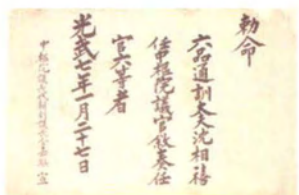 勅命
六品通訓大夫沈相禧
任中樞院議官敘奏任
官六等者
光武七年一月二十七日